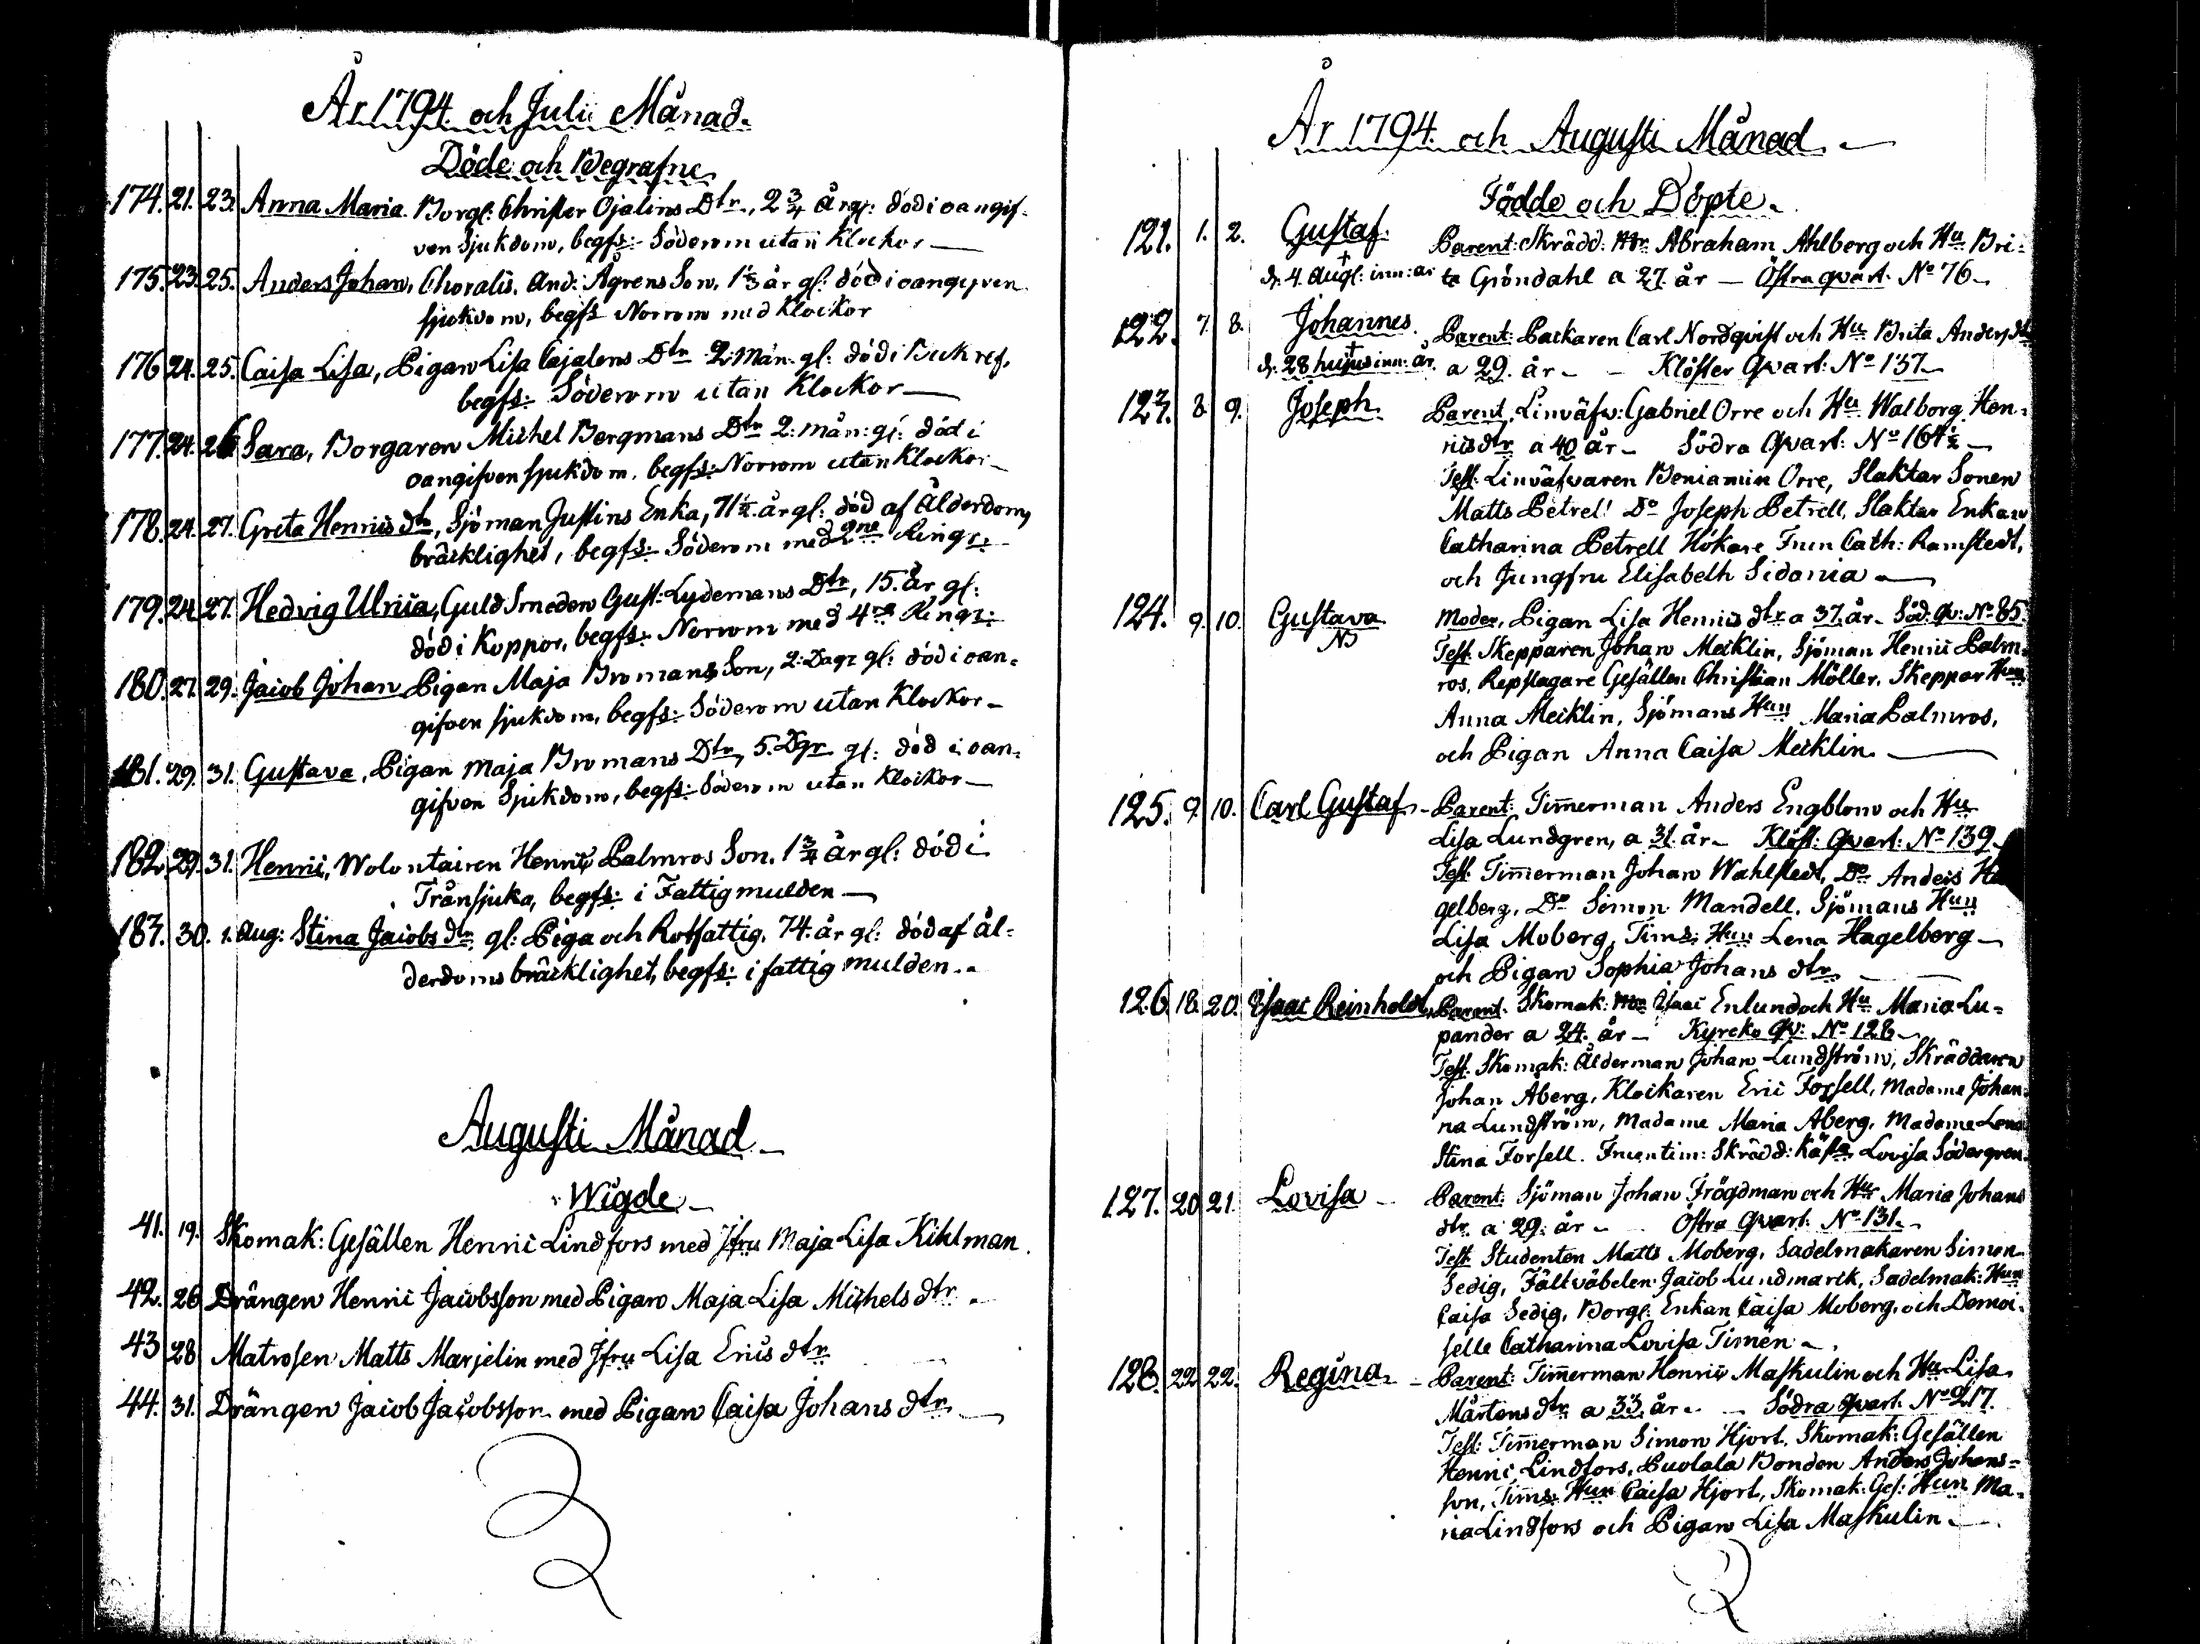 År 1794. och Julii Månad.
Döde och Begrafne
174. 21. 23. Anna Maria. Borgl: Christer Ojalins Dtr., 2 3/4 År gl: död i oangif-
ven Sjukdom, begfs: Söderom utan Klockor —
175. 23. 25. Anders Johan, Choralis. And: Ågrens Son, 1 1/3 år gl: död i oangifven
sjukdom, begfs Norrom med Klockor
176 24. 25. Caisa Lisa, Pigan Lisa Cajalens Dtr 2. Mån. gl: död i Buk ref,
begfs: Söderom utan Klockor —
177. 24. 26 Sara, Borgaren Michel Bergmans Dtr 2: mån: gl: död i
oangifven sjukdom, begfs: Norrom utan Klockor —
178. 24. 27. Greta Henrics dtr, Sjöman Justins Enka, 71 1/2 år gl: död af Ålderdoms
bräcklighet, begfs: Söderom med 2ne Ringr:
179. 24 27. Hedvig Ulrica, Guld Smeden Gust: Lydemans Dtr, 15. år gl:
död i Koppor, begfs: Norrom med 4ra Ringr:
180. 27. 29. Jacob Johan Pigan Maja Bromans Son, 2: Dagr gl: död i oan-
gifven sjukdom, begfs: Söderom utan Klockor —
181. 29. 31. Gustava, Pigan Maja Bromans Dtr, 5. Dgr gl: död i oan-
gifven Sjukdom, begfs: Söderom utan Klockor —
182. 29. 31. Henric, Wolontairen Henric Palmros Son. 1 3/4 År gl: död i
Trånsjuka, begfs: i Fattigmulden —
183. 30. 1. Aug: Stina Jacobs dtr gl: Piga och Rotfattig. 74. år gl: död af ål-
derdoms bräcklighet, begfs: i fattig mulden.
Augusti Månad —
Wigde —
41. 19. Skomak: Gesällen Henric Lindfors med Jfru Maja Lisa Kihlman.
42. 26 Drängen Henric Jacobsson med Pigan Maja Lisa Michels dtr
43 28 Matrosen Matts Marjelin med Jfru Lisa Erics dtr
44. 31. Drängen Jacob Jacobsson med Pigan Caisa Johans dtr —
År 1794. och Augusti Månad —
Födde och Döpte.
121. 1. 2. Gustaf. Parent: Skrädd: Mr Abraham Ahlberg och Hu Bri-
+
d. 4. Augl: inn: ar ta Gröndahl a 27. år — Östra qvart. No 76 —
122. 7. 8. Johannes. Parent: Backaren Carl Nordqvist och Hu Brita Anders dtr
+
d. 28 hujus inn: år. a 29. år — — Klöster Qvart: No 137 —
123. 8. 9. Joseph. Parent. Linväfv: Gabriel Orre och Hu Walborg Hen-
rics dtr a 40 år — Södra Qvart: No 164 1/2 —
Test: Linväfvaren Beniamin Orre, Slaktar Sonen
Matts Petrell Do Joseph Petrell, Slaktar Enkan
Catharina Petrell Hökare Frun Cath: Ramstedt,
och Jungfru Elisabeth Sidonia —
124. 9. 10. Gustava Moder, Pigan Lisa Henrics dtr a 37. år — Söd: Qv: No 85.
Test: Skepparen Johan Mecklin, Sjöman Henric Palm-
ros, Repslagare Gesällen Christian Möller, Skeppar Hun
Anna Mecklin, Sjömans Hun Maria Palmros,
och Pigan Anna Caisa Mecklin. —
125. 9. 10. Carl Gustaf — Parent: Timmerman Anders Engblom och Hu
Lisa Lundgren, a 31. år — Klöst: Qvart: No 139 —
Test: Timmerman Johan Wahlstedt, Do Anders Ha
gelberg, Do Simon Mandell, Sjömans Hun
Lisa Moberg, Tims: Hun Lena Hagelberg —
och Pigan Sophia Johans dtr —
126. 18. 20. Isaac Reinhold, Parent. Skomak: Mr Isaac Enlund och Hu Maria Lu-
pander a 24. år — Kyrcko Qv: No 128 —
Test: Skomak: Ålderman Johan Lundström, Skräddaren
Johan Åberg, Klockaren Eric Forsell, Madame Johan-
na Lundström, Madame Maria Åberg, Madame Lena
Stina Forsell. Fruentim: Skrädd: Käpa Lovisa Södergren.
127. 20 21. Lovisa — Parent: Sjöman Johan Trögdman och Hu Maria Johans
dtr a 29. år — Östra Qvart. No 131 —
Test: Studenten Matts Moberg, Sadelmakaren Simon
Sedig, Fältväbelen Jacob Lundmarck, Sadelmak: Hun
Caisa Sedig, Borgl: Enkan Caisa Moberg, och Demoi-
selle Catharina Lovisa Timén —
128. 22 22. Regina — Parent: Timmerman Henric Maskulin och Hu Lisa
Mårtens dtr a 33. år — Södra qvart. No 217.
Test: Timmerman Simon Hjort, Skomak: Gesällen
Henric Lindfors, Puolala Bonden Anders Johans-
son, Tims: Hun Caisa Hjort, Skomak: Ges: Hun Ma-
ria Lindfors och Pigan Lisa Maskulin —